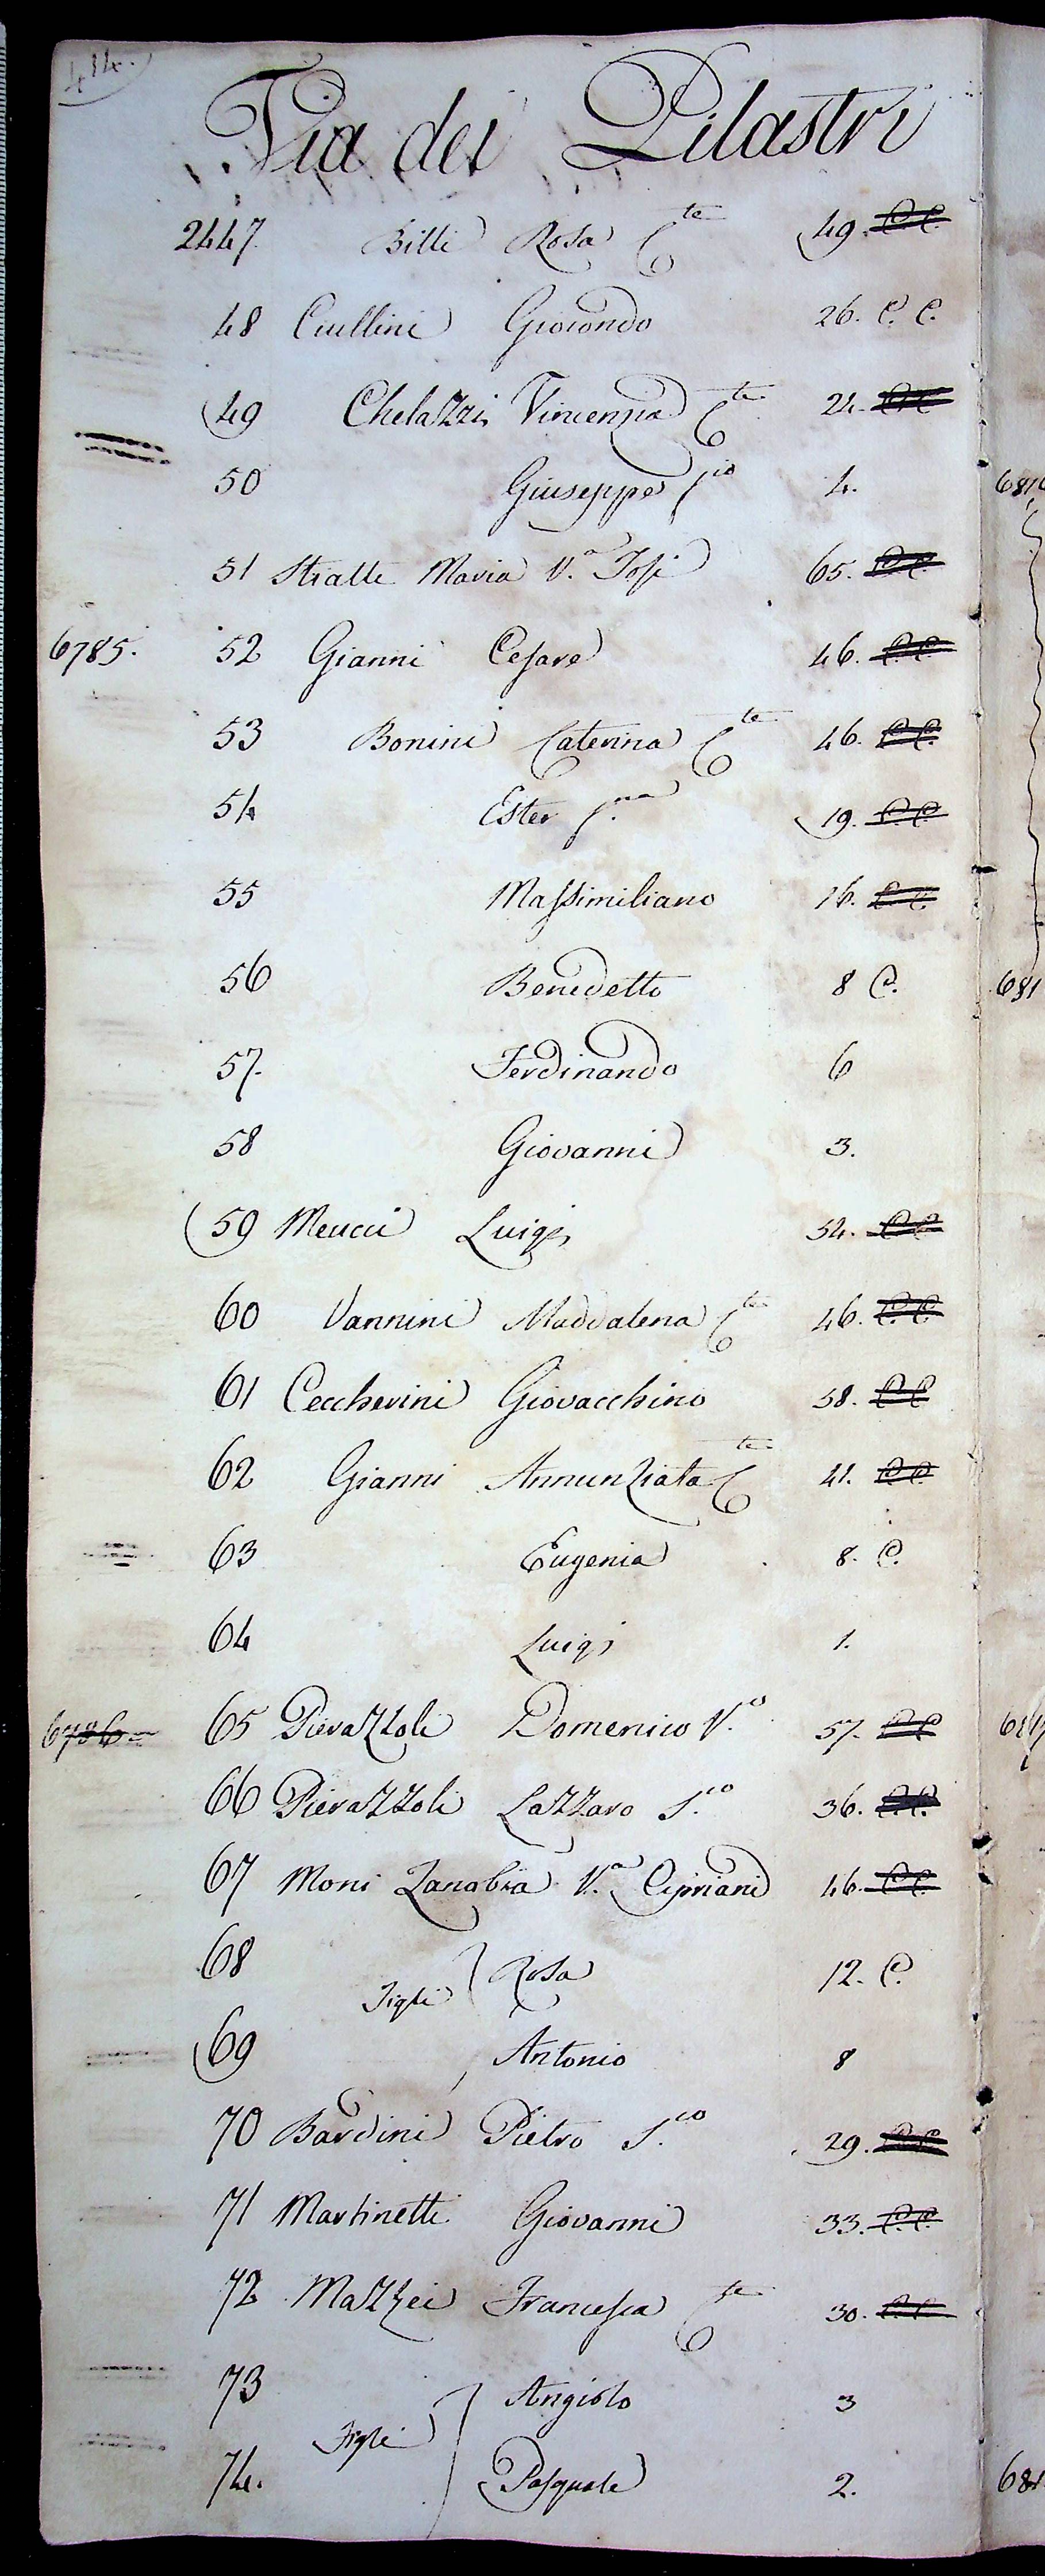 414.
Via dei Pilastri
2447. Billi Rosa C.te 49. C.C.
48 Ciullini Giocondo 26. C. C.
49 Chelazzi Vincenzia C.te 24. C.C.
50 Giuseppe f.io 4.
51 Stialti Maria V.a Tosi 65. C.C.
6785. 52 Gianni Cesare 46. C.C.
53 Bonini Caterina C.te 46. C.C.
54 Ester f.na 19. C.C.
55 Massimiliano 16. C.C.
56 Benedetto 8 C.
57. Ferdinando 6
58 Giovanni 3.
59 Meucci Luigi 54. C.C.
60 Vannini Maddalena C.te 46. C.C.
61 Ceccherini Giovacchino 58. C.C.
62 Gianni Annunziata C.te 41. C.C.
63 Eugenia 8. C.
64 Luigi 1.
6786 65 Pierazzoli Domenico V.o 57. C.C.
66 Pierazzoli Lazzaro S.io 36. C.C.
67 Moni Zanobia V.a Cipriani 46. C.C.
68 Rosa 12. C.
Figli
69 Antonio 8
70 Bardini Pietro S.io 29. C.C.
71 Martinetti Giovanni 33. C.C.
72 Mazzei Francesca C.te 30. C.C.
73 Angiolo 3
Figli
74. Pasquale 2.